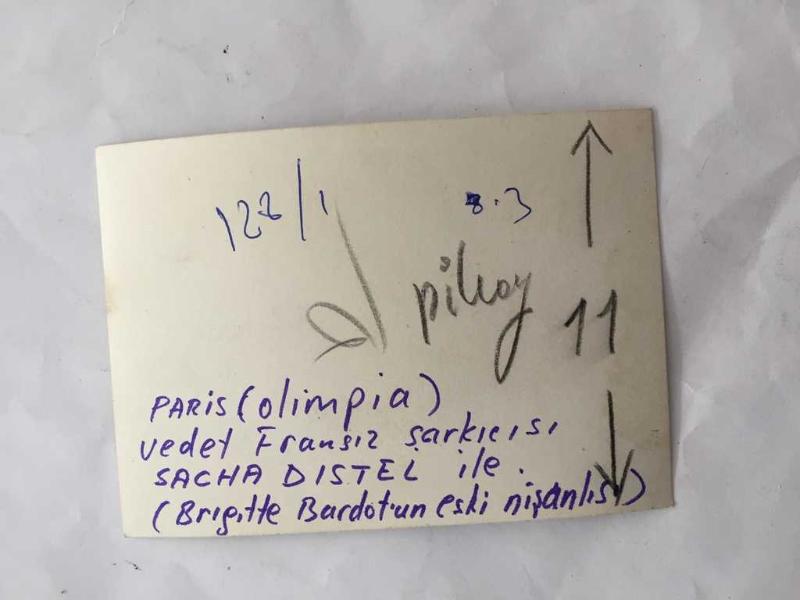 128/1
8.3
pikoy
11
PARİS (olimpia)
vedet Fransız şarkıcısı
SACHA DISTEL ile.
(Brigitte Bardot'un eski nişanlısı)